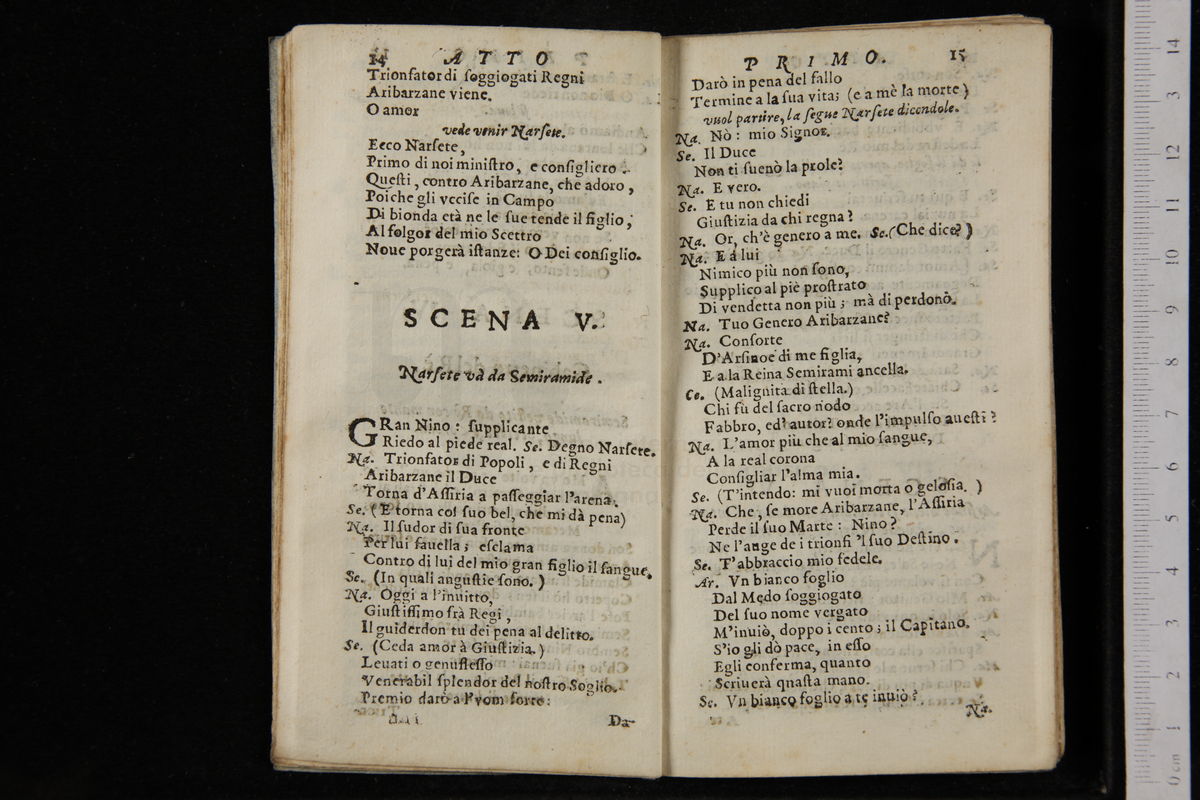 14 ATTO
Trionfator di ſoggiogati Regni
Aribarzane viene.
O amor
vede venir Narſete.
Ecco Narſete,
Primo di noi miniſtro, e conſigliero.
Queſti, contro Aribarzane, che adoro,
Poiche gli vcciſe in Campo
Di bionda età ne le ſue tende il figlio,
Al folgor del mio Scettro
Noue porgerà iſtanze: O Dei conſiglio.
SCENA V.
Narſete và da Semiramide.
GRan Nino: ſupplicante
Riedo al piede real. Se. Degno Narſete.
Na. Trionfator di Popoli, e di Regni
Aribarzane il Duce
Torna d'Aſſiria a paſſeggiar l'arena.
Se. (E torna col ſuo bel, che mi dà pena)
Na. Il ſudor di ſua fronte
Per lui fauella; eſclama
Contro di lui del mio gran figlio il ſangue.
Se. (In quali anguſtie ſono.)
Na. Oggi a l'inuitto,
Giuſtiſſimo frà Regi,
Il guiderdon tu dei pena al delitto.
Se. (Ceda amor à Giuſtizia.)
Leuati o genufleſſo
Venerabil ſplendor del noſtro Soglio.
Premio darò a l'vom forte:
Da-
PRIMO. 15
Darò in pena del fallo
Termine a la ſua vita; (e a mè la morte)
vuol partire, la ſegue Narſete dicendole.
Na. Nò: mio Signor.
Se. Il Duce
Non ti ſuenò la prole?
Na. E vero.
Se. E tu non chiedi
Giuſtizia da chi regna?
Na. Or, ch'è genero a me. Se. (Che dice?)
Na. E a lui
Nimico più non ſono,
Supplico al piè proſtrato
Di vendetta non più; mà di perdono.
Na. Tuo Genero Aribarzane?
Na. Conſorte
D'Arſinoe di me figlia,
E a la Reina Semirami ancella.
Ce. (Malignita di ſtella.)
Chi fù del ſacro nodo
Fabbro, ed' autor? onde l'impulſo aueſti?
Na. L'amor più che al mio ſangue,
A la real corona
Conſigliar l'alma mia.
Se. (T'intendo: mi vuoi morta o geloſia.)
Na. Che, ſe more Aribarzane, l'Aſſiria
Perde il ſuo Marte: Nino?
Ne l'auge de i trionfi 'l ſuo Deſtino.
Se. T'abbraccio mio fedele.
Ar. Vn bianco foglio
Dal Medo ſoggiogato
Del ſuo nome vergato
M'inuiò, doppo i cento; il Capitano.
S'io gli dò pace, in eſſo
Egli conferma, quanto
Scriuerà quaſta mano.
Se. Vn bianco foglio a te inuiò?
Na.